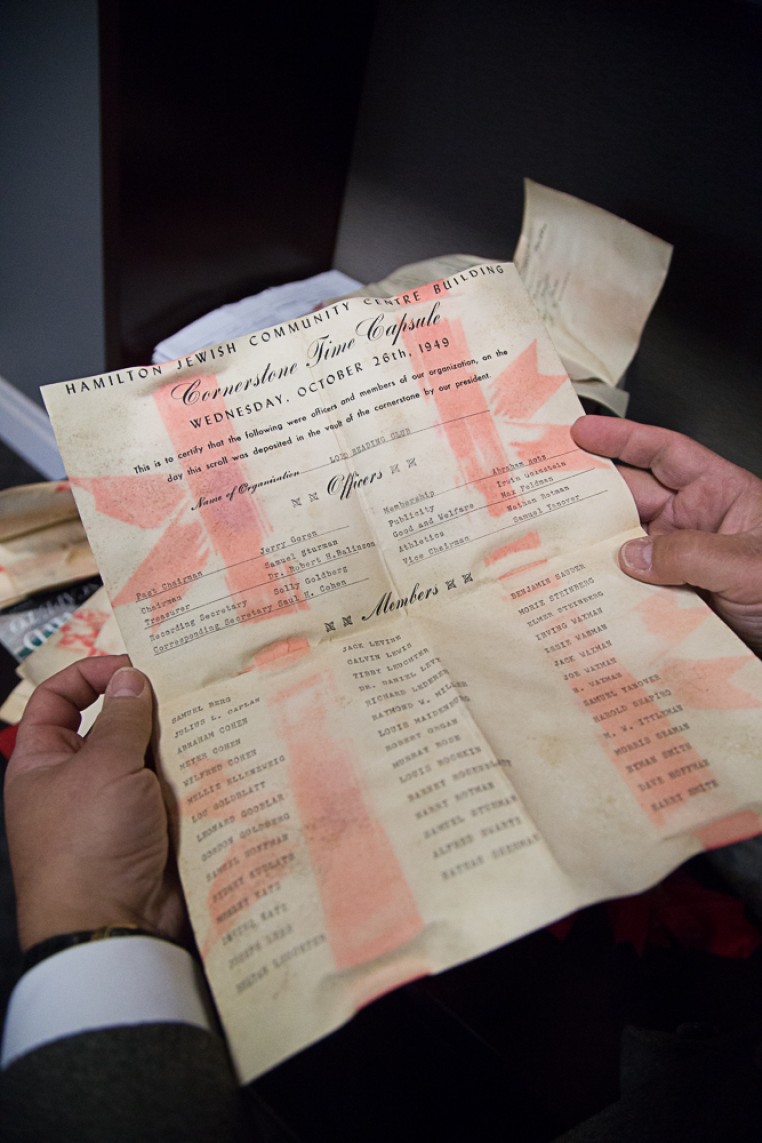 HAMILTON JEWISH COMMUNITY CENTRE BUILDING
Cornerstone Time Capsule
WEDNESDAY, OCTOBER 26th, 1949
This is to certify that the following were officers and members of our organization, on the
day this scroll was deposited in the vault of the cornerstone by our president.
Name of Organization LORD READING CLUB
Officers
Past Chairman Jerry Goren
Chairman Samuel Sturman
Treasurer Dr. Robert H.Balinson
Recording Secretary Solly Goldberg
Corresponding Secretary Saul H. Cohen
Membership Abraham
Publicity Irwin
Good and Welfare Max Feldman
Athletics Nathan Rotman
Vice Chairman Samuel Yanover
Members
SAMUEL BERG
JULIUS L. CAPLAN
ABRAHAM COHEN
MEYER COHEN
WILFRED COHEN
WELLIE ELLENZWEIG
LOU GOLDBLATT
LEONARD GOODLAR
GORDON GOLDBERG
SAMUEL HOFFMAN
SYDNEY
MORLEY KATZ
KATZ
JOSEPH
LEUCHTER
JACK LEVINE
CALVIN LEWIS
LEUCHTER
DR. DANIEL
RICHARD LEDERER
RAYMOND W. MILLER
LOUIS
ROBERT ORGAN
MURRAY ROSE
LOUIS
BARNEY
HARRY ROTMAN
SAMUEL STURMAN
ALFRED SWARTZ
NATHAN SHERMAN
BENJAMIN SAUDER
MORIE STEINBERG
ELMER STEINBERG
IRVING WAXMAN
ISSIE WAXMAN
JACK WAXMAN
JOE WAXMAN
H. WAXMAN
SAMUEL YANOVER
HAROLD SHAPIRO
MORRIS SEAMAN
HYMAN SMITH
DAVE HOFFMAN
HARRY SMITH